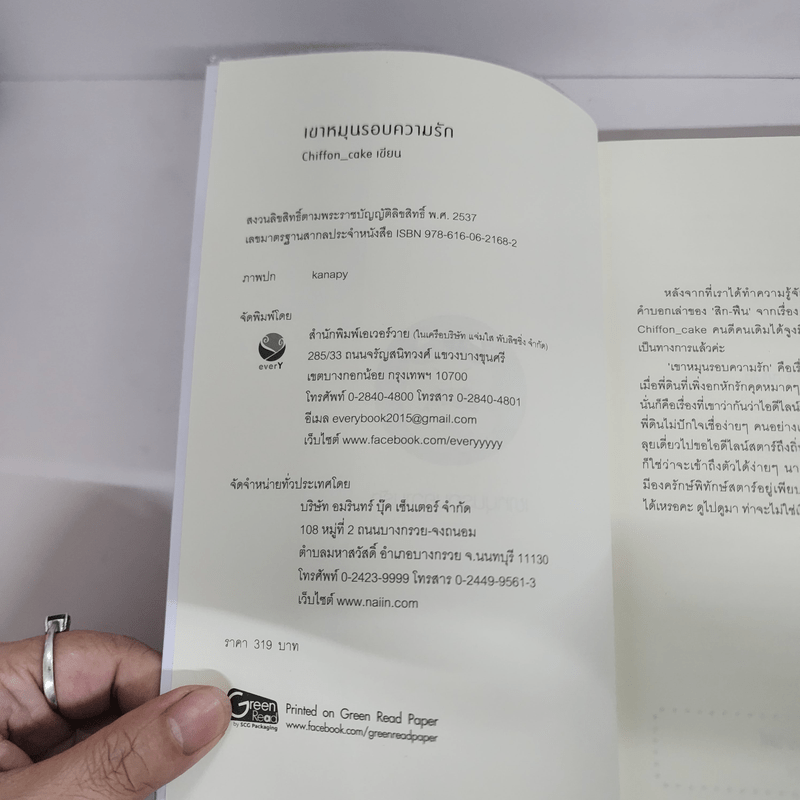 เขาหมุนรอบความรัก
Chiffon_cake เขียน
สงวนลิขสิทธิ์ตามพระราชบัญญัติลิขสิทธิ์ พ.ศ. 2537
เลขมาตรฐานสากลประจำหนังสือ ISBN 978-616-06-2168-2
ภาพปก kanapy
จัดพิมพ์โดย
everY
สำนักพิมพ์เอเวอร์วาย (ในเครือบริษัท แจ่มใส พับลิชชิ่ง จำกัด)
285/33 ถนนจรัญสนิทวงศ์ แขวงบางขุนศรี
เขตบางกอกน้อย กรุงเทพฯ 10700
โทรศัพท์ 0-2840-4800 โทรสาร 0-2840-4801
อีเมล everybook2015@gmail.com
เว็บไซต์ www.facebook.com/everyyyyy
จัดจำหน่ายทั่วประเทศโดย
บริษัท อมรินทร์ บุ๊ค เซ็นเตอร์ จำกัด
108 หมู่ที่ 2 ถนนบางกรวย-จงถนอม
ตำบลมหาสวัสดิ์ อำเภอบางกรวย จ.นนทบุรี 11130
โทรศัพท์ 0-2423-9999 โทรสาร 0-2449-9561-3
เว็บไซต์ www.naiin.com
ราคา 319 บาท
Green
Read
by SCG Packaging
Printed on Green Read Paper
www.facebook.com/greenreadpaper
หลังจากที่เราได้ทำความรู้จั
คำบอกเล่าของ 'สิก-ฟืน' จากเรื่อง
Chiffon_cake คนดีคนเดิมได้จูงมื
เป็นทางการแล้วค่ะ
'เขาหมุนรอบความรัก' คือเรื่
เมื่อพี่ดินที่เพิ่งอกหักรักคุดหมาดๆ
นั่นก็คือเรื่องที่เขาว่ากันว่าไอดีไลน์
พี่ดินไม่ปักใจเชื่อง่ายๆ คนอย่างเ
ลุยเดี่ยวไปขอไอดีไลน์สตาร์ถึงถิ่
ก็ใช่ว่าจะเข้าถึงตัวได้ง่ายๆ นา
มีองครักษ์พิทักษ์สตาร์อยู่เพียบ
ได้เหรอคะ ดูไปดูมา ท่าจะไม่ใช่เ